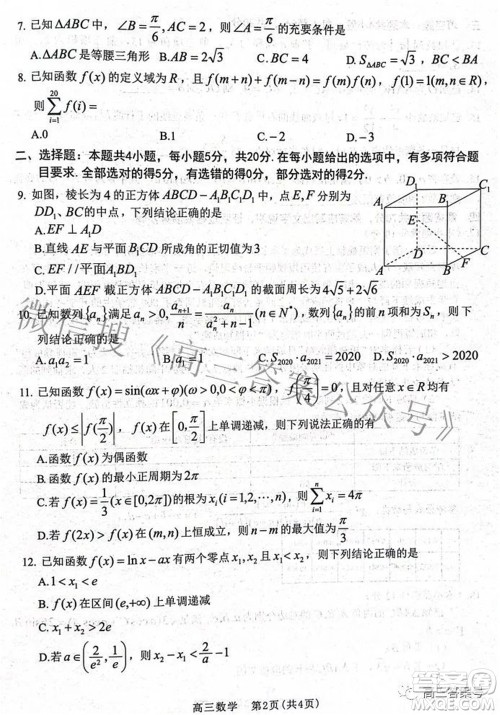 7. 已知△ABC中，∠B=π/6,AC=2，则∠A=π/6的充要条件是
A.△ABC是等腰三角形 B.AB=2√3 C.BC=4 D.S△ABC=√3，BC<BA
8. 已知函数f(x)的定义域为R，且f(m+n)+f(m-n)=f(m)f(n)，f(1)=1，
则∑(i=1→20)f(i)=
A.0 B.1 C.-2 D.-3
二、选择题：本题共4小题，每小题5分，共20分.在每小题给出的选项中，有多项符合题
目要求.全部选对的得5分，有选错的得0分，部分选对的得2分.
9. 如图，棱长为4的正方体ABCD-A₁B₁C₁D₁中，点E,F分别为
DD₁、BC的中点，下列结论正确的是
A.EF⊥A₁D
B.直线AE与平面B₁BCD所成角的正切值为3
C.EF//平面A₁BD₁
D.平面AEF截正方体ABCD-A₁B₁C₁D₁的截面周长为4√5+2√6
D₁ C₁
A₁ B₁
E
D C
F
A B
10. 已知数列{aₙ}满足aₙ>0, aₙ₊₁/n=aₙ/(aₙ²+n-1)(n∈N*)，数列{aₙ}的前n项和为Sₙ，则下
列结论正确的是
A.a₁a₂=1 B.a₁=1 C.S₂₀₂₀·a₂₀₂₁=2020 D.S₂₀₂₀·a₂₀₂₁>2020
11. 已知函数f(x)=sin(ωx+φ)(ω>0,0<φ<π)， f(π/4)=0，且对任意x∈R均有
f(x)≤|f(π/2)|，f(x)在[0,π/2]上单调递减，则下列说法正确的有
A.函数f(x)为偶函数
B.函数f(x)的最小正周期为2π
C.若f(x)=1/3(x∈[0,2π])的根为xᵢ(i=1,2,⋯,n)，则∑(i=1→n)xᵢ=4π
D.若f(2x)>f(x)在(m,n)上恒成立，则n-m的最大值为π/3
12. 已知函数f(x)=ln x-ax有两个零点x₁,x₂，且x₁<x₂，则下列结论正确的是
A.1<x₁<e
B.f(x)在区间(e,+∞)上单调递减
C.x₁+x₂>2e
D.若a∈(2/e²,1/e)，则x₂-x₁<2/a-1
高三数学 第2页(共4页)
微信搜《高三答案公众号》
高三答案号